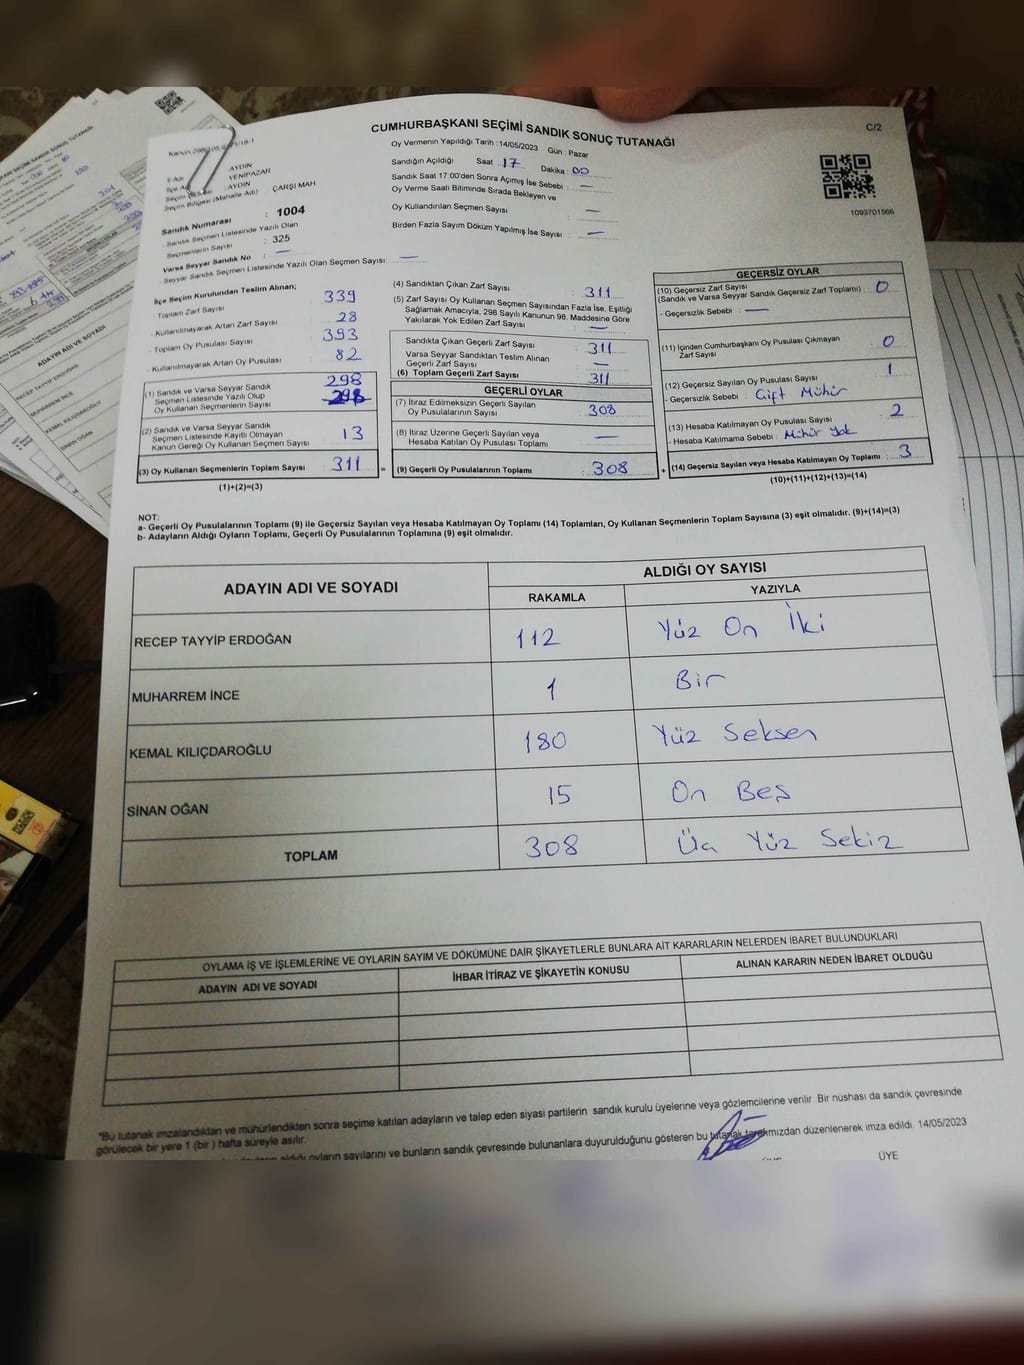 CUMHURBAŞKANI SEÇİMİ SANDIK SONUÇ TUTANAĞI
C/2
AYDIN
YENİPAZAR
AYDIN
Seçim Bölgesi (Mahalle Adı) ÇARŞI MAH
Sandık Numarası : 1004
- Sandık Seçmen Listesinde Yazılı Olan
Seçmenlerin Sayısı : 325
Varsa Seyyar Sandık No —
- Seyyar Sandık Seçmen Listesinde Yazılı Olan Seçmen Sayısı: —
Oy Vermenin Yapıldığı Tarih :14/05/2023 Gün : Pazar
Sandığın Açıldığı Saat 17 Dakika : 00
Sandık Saat 17:00'den Sonra Açımış İse Sebebi : —
Oy Verme Saati Bitiminde Sırada Bekleyen ve
Oy Kullandırılan Seçmen Sayısı : —
Birden Fazla Sayım Döküm Yapılmış İse Sayısı : —
1093701566
İlçe Seçim Kurulundan Teslim Alınan;
- Toplam Zarf Sayısı 339
- Kullanılmayarak Artan Zarf Sayısı 28
- Toplam Oy Pusulası Sayısı 393
- Kullanılmayarak Artan Oy Pusulası 82
(1) Sandık ve Varsa Seyyar Sandık
Seçmen Listesinde Yazılı Olup
Oy Kullanan Seçmenlerin Sayısı 298
(2) Sandık ve Varsa Seyyar Sandık
Seçmen Listesinde Kayıtlı Olmayan
Kanun Gereği Oy Kullanan Seçmen Sayısı 13
(3) Oy Kullanan Seçmenlerin Toplam Sayısı : 311 =
(1)+(2)=(3)
(4) Sandıktan Çıkan Zarf Sayısı : 311
(5) Zarf Sayısı Oy Kullanan Seçmen Sayısından Fazla İse, Eşitliği
Sağlamak Amacıyla, 298 Sayılı Kanunun 98. Maddesine Göre
Yakılarak Yok Edilen Zarf Sayısı : —
Sandıkta Çıkan Geçerli Zarf Sayısı : 311
Varsa Seyyar Sandıktan Teslim Alınan
Geçerli Zarf Sayısı : —
(6) Toplam Geçerli Zarf Sayısı : 311
GEÇERLİ OYLAR
(7) İtiraz Edilmeksizin Geçerli Sayılan
Oy Pusulalarının Sayısı : 308
(8) İtiraz Üzerine Geçerli Sayılan veya
Hesaba Katılan Oy Pusulası Toplamı : —
(9) Geçerli Oy Pusulalarının Toplamı : 308 +
GEÇERSİZ OYLAR
(10) Geçersiz Zarf Sayısı
(Sandık ve Varsa Seyyar Sandık Geçersiz Zarf Toplamı) : 0
- Geçersizlik Sebebi : —
(11) İçinden Cumhurbaşkanı Oy Pusulası Çıkmayan
Zarf Sayısı : 0
(12) Geçersiz Sayılan Oy Pusulası Sayısı : 1
- Geçersizlik Sebebi : Çift Mühür
(13) Hesaba Katılmayan Oy Pusulası Sayısı : 2
- Hesaba Katılmama Sebebi : Mühür Yok
(14) Geçersiz Sayılan veya Hesaba Katılmayan Oy Toplamı : 3
(10)+(11)+(12)+(13)=(14)
NOT:
a- Geçerli Oy Pusulalarının Toplamı (9) ile Geçersiz Sayılan veya Hesaba Katılmayan Oy Toplamı (14) Toplamları, Oy Kullanan Seçmenlerin Toplam Sayısına (3) eşit olmalıdır. (9)+(14)=(3)
b- Adayların Aldığı Oyların Toplamı, Geçerli Oy Pusulalarının Toplamına (9) eşit olmalıdır.
ADAYIN ADI VE SOYADI ALDIĞI OY SAYISI
RAKAMLA YAZIYLA
RECEP TAYYİP ERDOĞAN 112 Yüz On İki
MUHARREM İNCE 1 Bir
KEMAL KILIÇDAROĞLU 180 Yüz Seksen
SİNAN OĞAN 15 On Beş
TOPLAM 308 Üç Yüz Sekiz
OYLAMA İŞ VE İŞLEMLERİNE VE OYLARIN SAYIM VE DÖKÜMÜNE DAİR ŞİKAYETLERLE BUNLARA AİT KARARLARIN NELERDEN İBARET BULUNDUKLARI
ADAYIN ADI VE SOYADI İHBAR İTİRAZ VE ŞİKAYETİN KONUSU ALINAN KARARIN NEDEN İBARET OLDUĞU
"Bu tutanak imzalandıktan ve mühürlendikten sonra seçime katılan adayların ve talep eden siyasi partilerin sandık kurulu üyelerine veya gözlemcilerine verilir. Bir nüshası da sandık çevresinde
görülecek bir yere 1 (bir ) hafta süreyle asılır.
aldığı oyların sayılarını ve bunların sandık çevresinde bulunanlara duyurulduğunu gösteren bu tutanak tarafımızdan düzenlenerek imza edildi. 14/05/2023
ÜYE